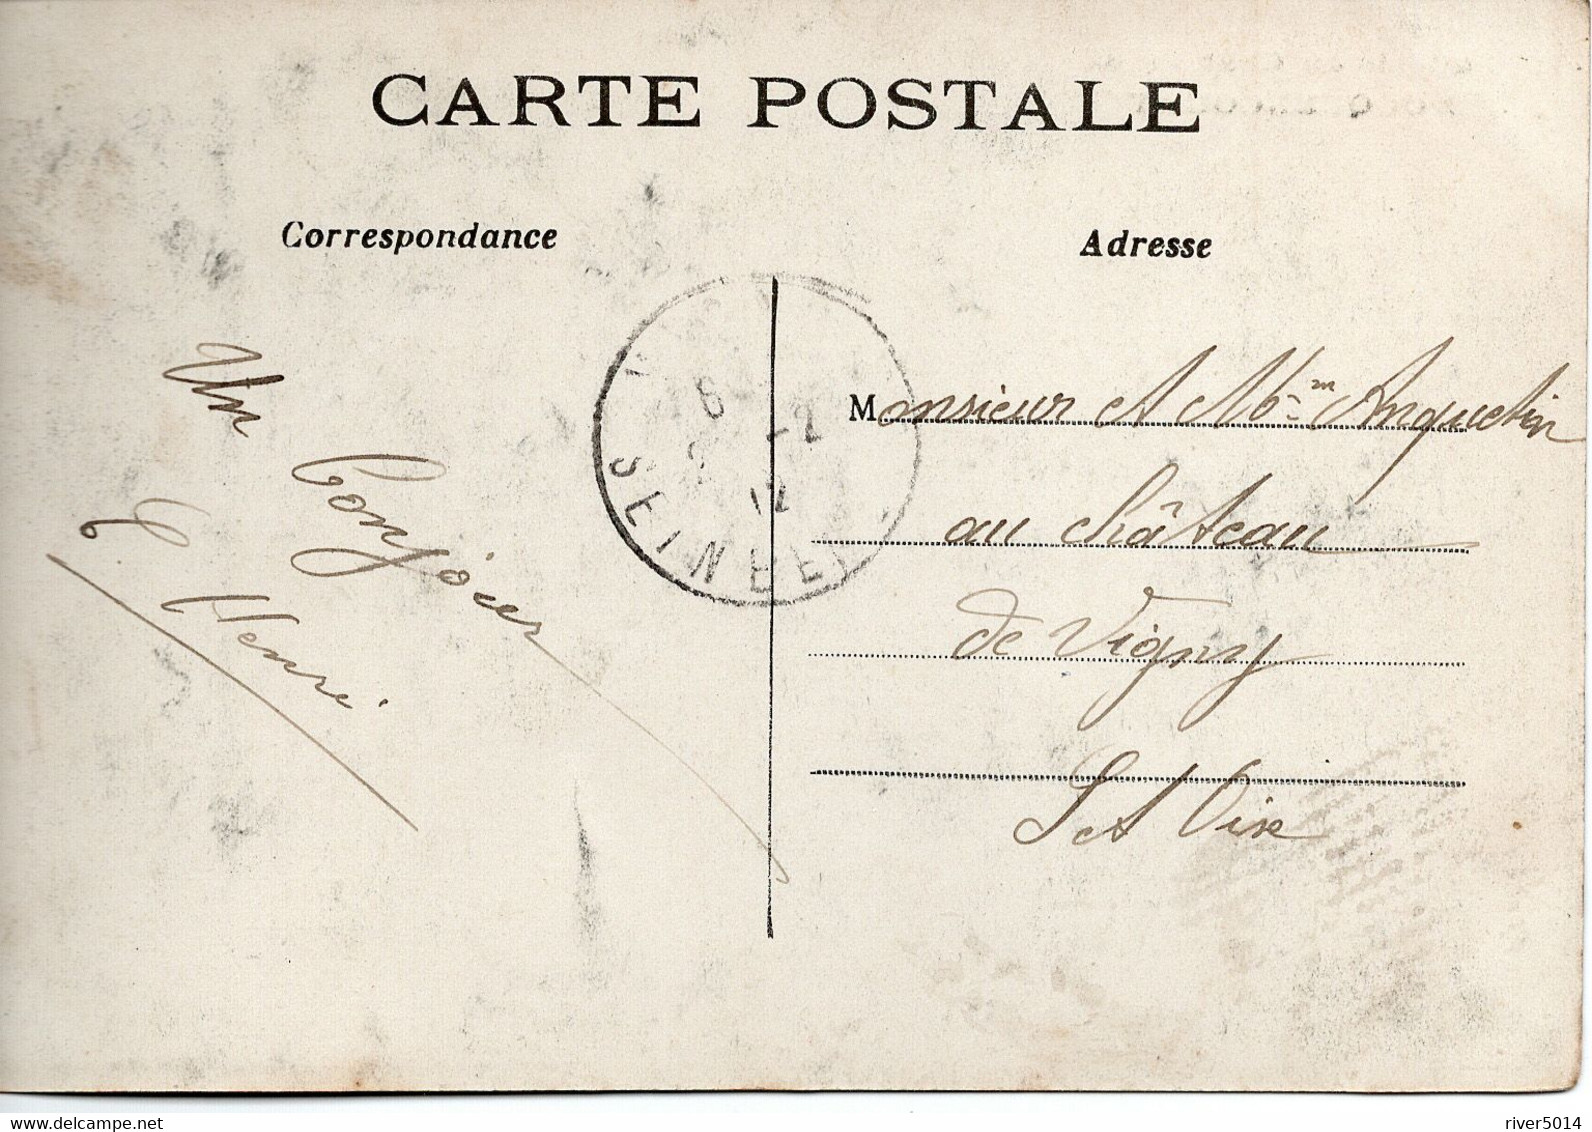 CARTE POSTALE
Correspondance
Adresse
Un
Bonjour
E Henri
Monsieur et Mme Anquetin
au château
de Vigny
S et Oise
8
-2
11
SEINE ET
river5014